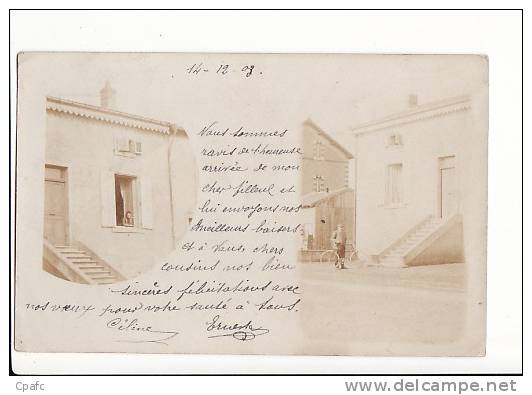 14-12-03.
Nous sommes
ravis de l'heureuse
arrivée de mon
cher filleul et
lui envoyons nos
meilleurs baisers
et à vous, chers
cousins nos bien
sincères félicitations avec
nos vœux pour votre santé à tous.
Céline Ernest
Cpafc
www.delcampe.net